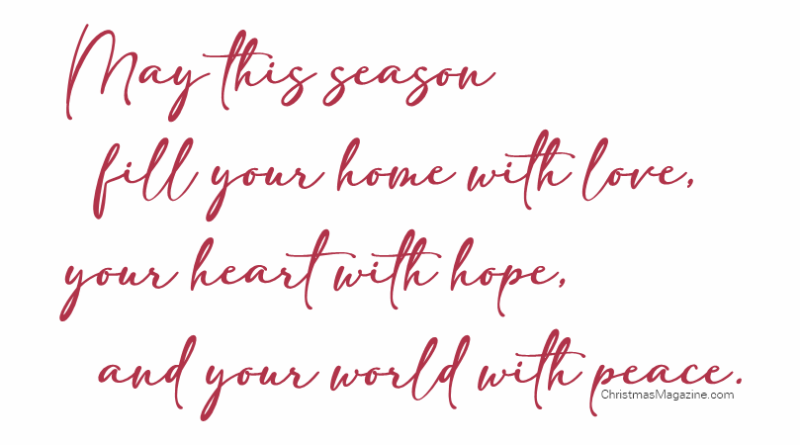 May this season
fill your home with love,
your heart with hope,
and your world with peace.
ChristmasMagazine.com